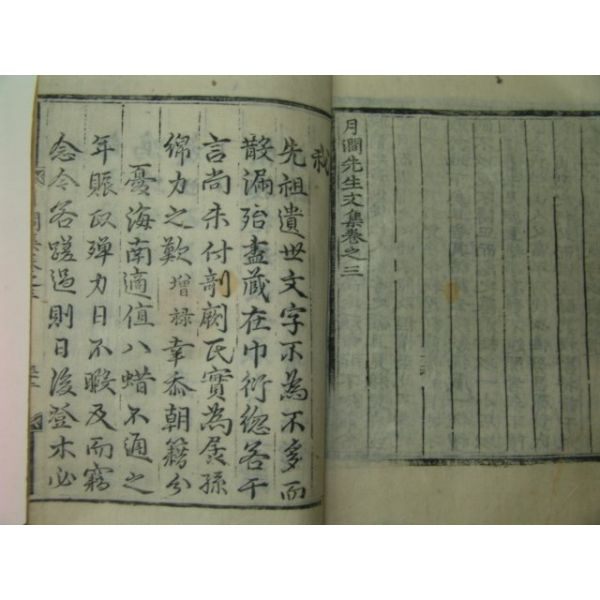 月澗先生文集卷之三
先祖遺世文字不為不多而
散漏殆盡藏在巾衍總若干
言尚未付剞劂氏實為孱孫
綿力之歎增祿幸忝朝籍分
憂海南適值八蜡不通之
年賑政殫力日不暇及而竊
念今若蹉過則日後登木必